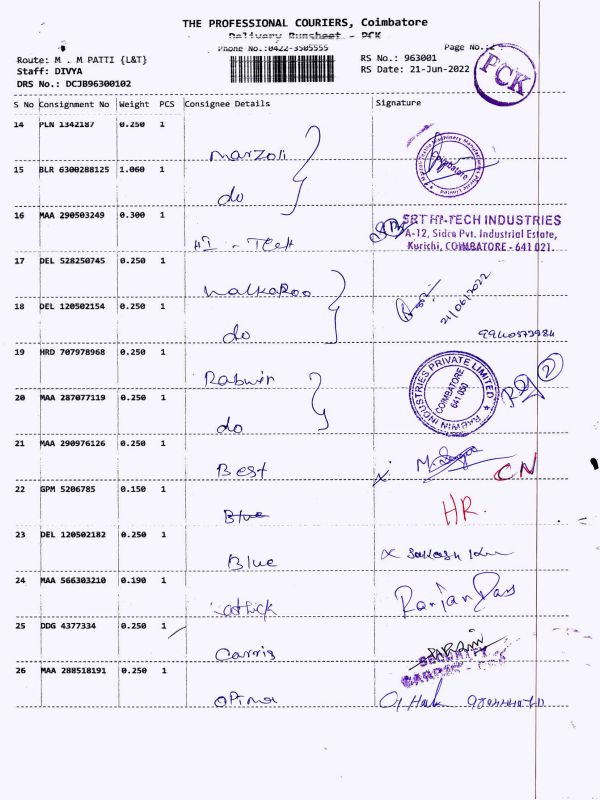 THE PROFESSIONAL COURIERS, Coimbatore
Delivery Runsheet - PCK
Phone No.:0422-3505555
Page No.:2
Route: M . M PATTI {L&T}
RS No.: 963001
Staff: DIVYA
RS Date: 21-Jun-2022
DRS No.: DCJB96300102
PCK
S No Consignment No Weight PCS Consignee Details Signature
14 PLN 1342187 0.250 1
Marzoli
15 BLR 6300288125 1.060 1
do
16 MAA 290503249 0.300 1
HI - Tech
SRT HI-TECH INDUSTRIES
A-12, Sidco Pvt. Industrial Estate,
Kurichi, COIMBATORE - 641 021.
17 DEL 528250745 0.250 1
Walkaroo
21/06/2022
18 DEL 120502154 0.250 1
do
19 HRD 707978968 0.250 1
Rabwin
INDUSTRIES PRIVATE LIMITED
COIMBATORE
641 050
20 MAA 287077119 0.250 1
do
21 MAA 290976126 0.250 1
Best
CN
22 GPM 5206785 0.150 1
Blue
HR.
23 DEL 120502182 0.250 1
Blue
24 MAA 566303210 0.190 1
Ranjan Dass
25 DDG 4377334 0.250 1
Carris
SECURITY
26 MAA 288518191 0.250 1